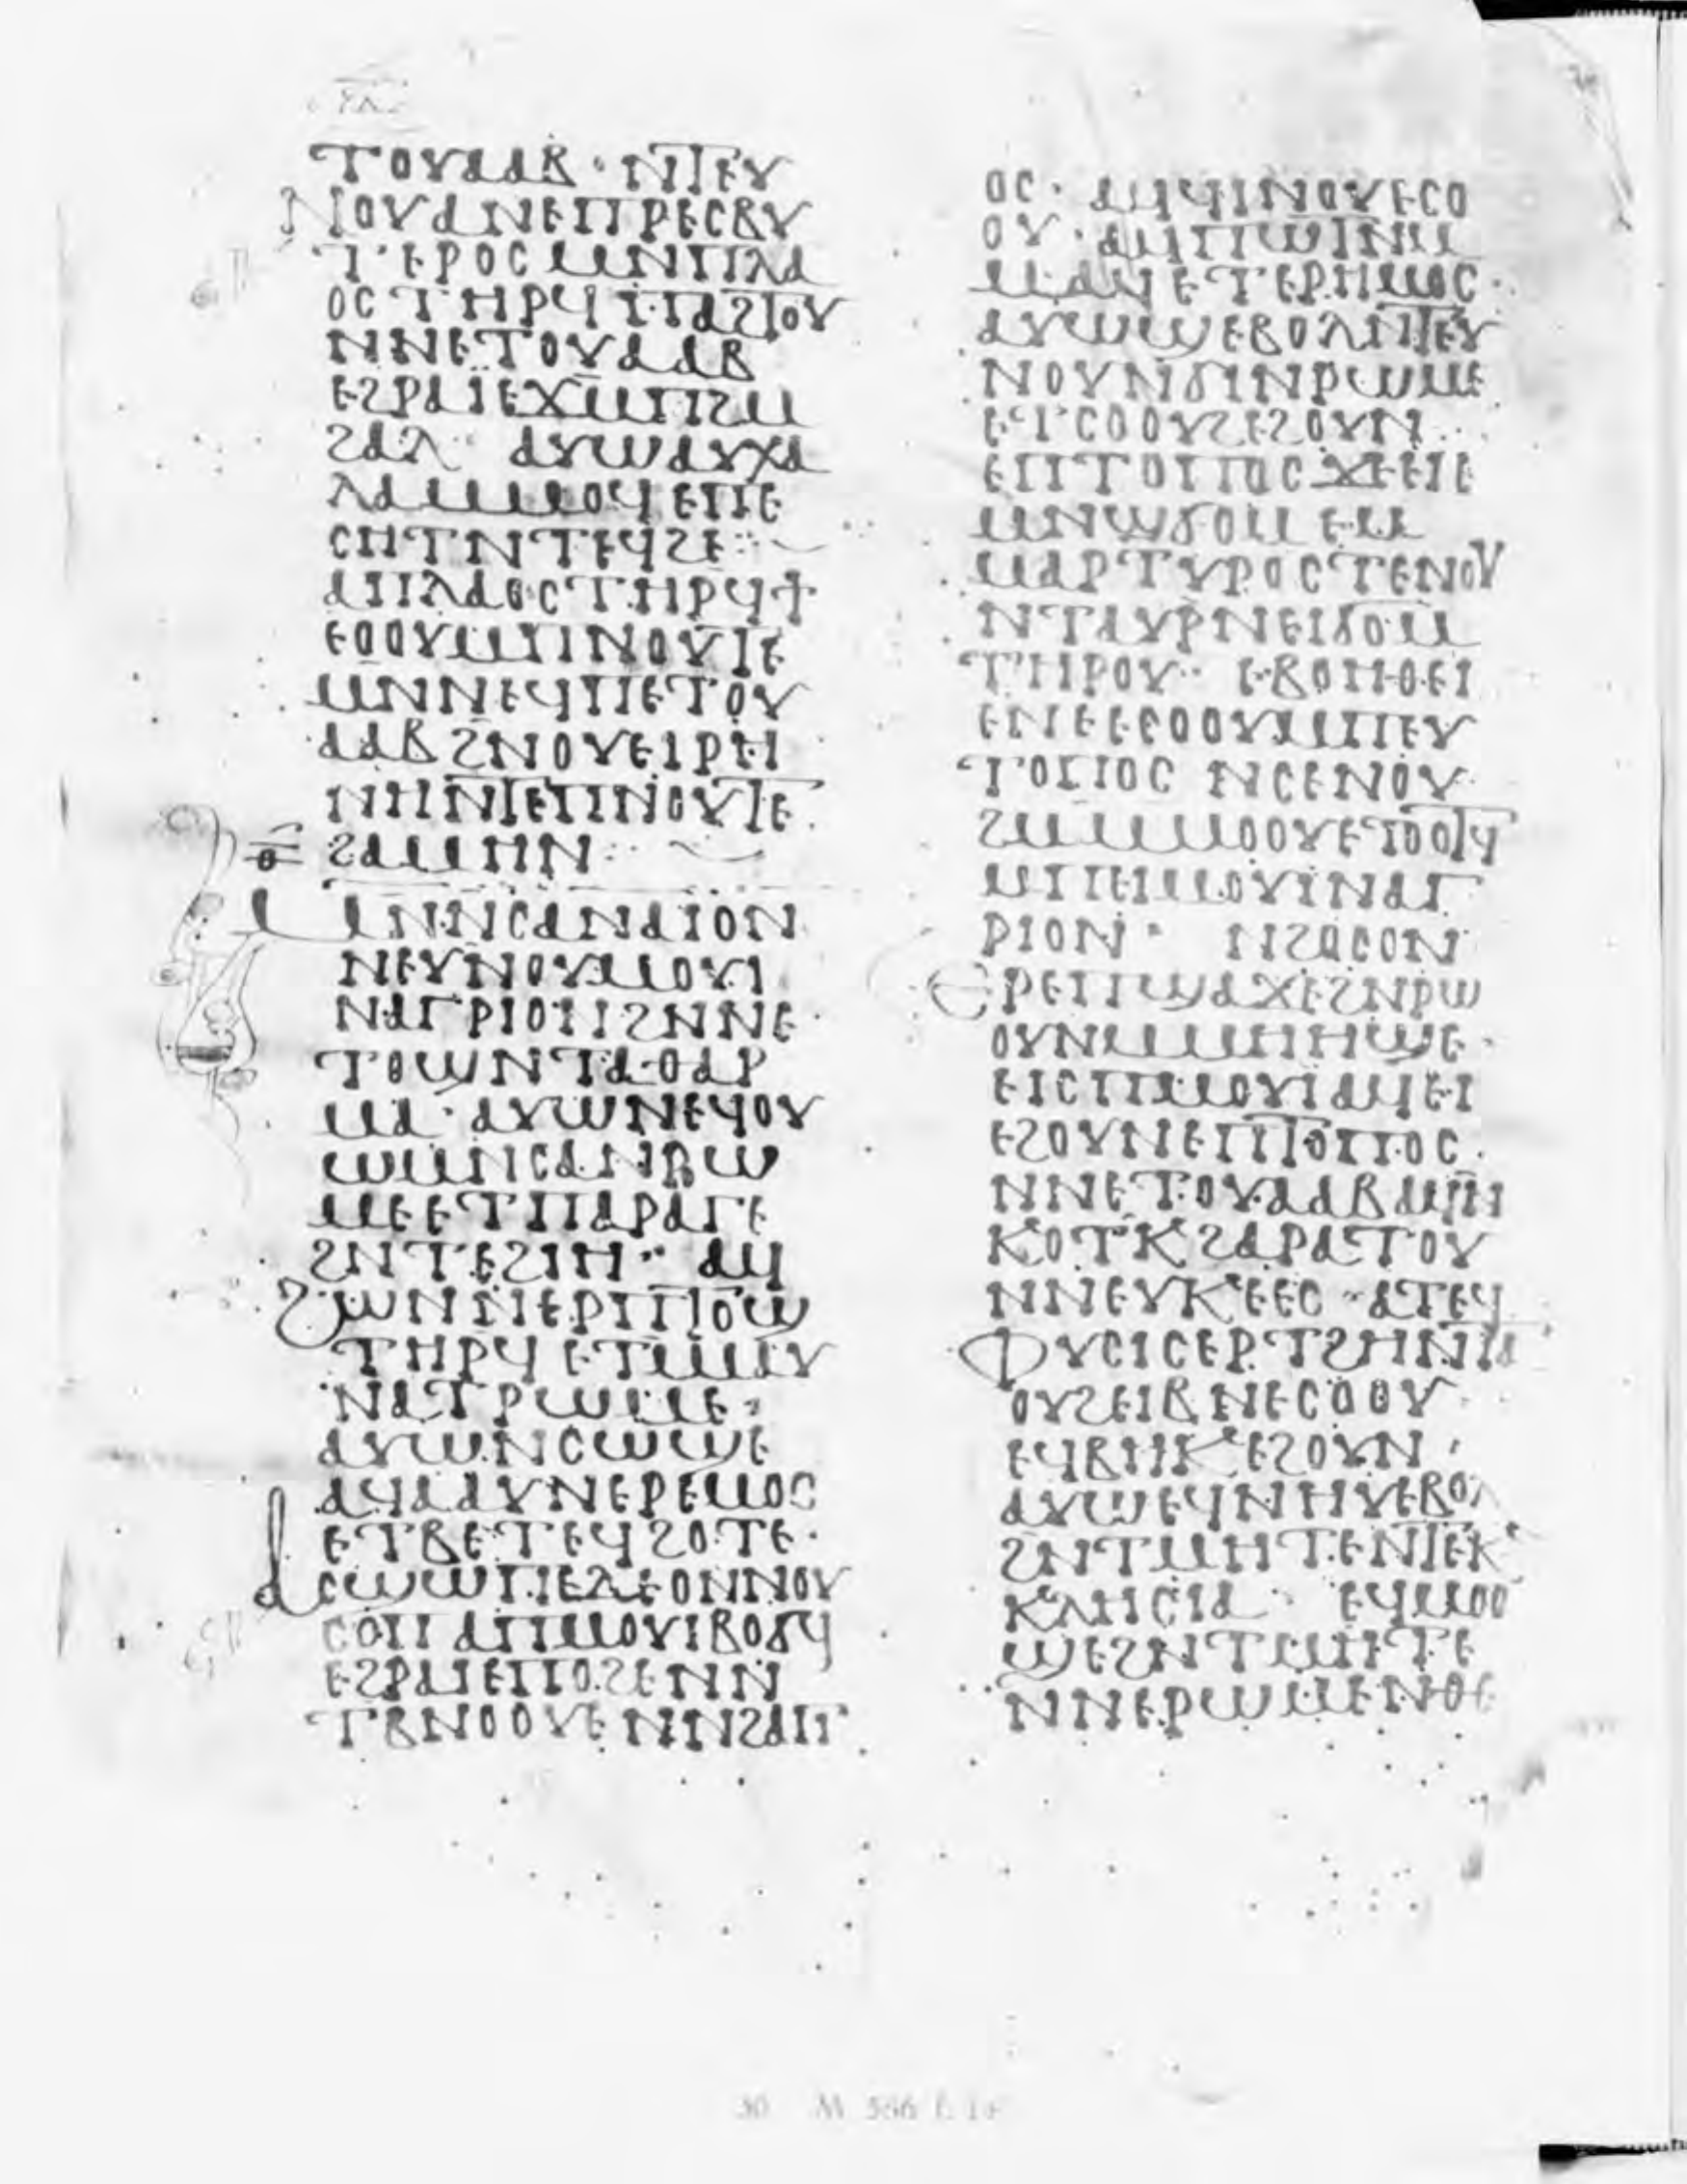 ⲧⲟⲩⲁⲁⲃ · ⲛⲧⲉⲩ
ⲛⲟⲩ ⲁⲛⲉⲡⲣⲉⲥⲃⲩ
ⲧⲉⲣⲟⲥ ⲙⲛⲡⲗⲁ
ⲟⲥ ⲧⲏⲣϥ ⲧ ⲡⲁϩⲧⲟⲩ
ⲛⲛⲉⲧⲟⲩⲁⲁⲃ
ⲉϩⲣⲁⲓ̈ ⲉϫⲙⲡϩⲙ
ϩⲁⲗ · ⲁⲩⲱ ⲁⲩⲭⲁ
ⲗⲁ ⲙⲙⲟϥ ⲉⲡⲉ
ⲥⲏⲧ ⲛⲧⲉϥϩⲉ ⁘
ⲁⲡⲗⲁⲟⲥ ⲧⲏⲣϥ ϯ
ⲉⲟⲟⲩ ⲙⲡⲛⲟⲩⲧⲉ
ⲙⲛⲛⲉϥⲡⲉⲧⲟⲩ
ⲁⲁⲃ ϩⲛⲟⲩⲉⲓⲣⲏ
ⲛⲏ ⲛⲧⲉⲡⲛⲟⲩⲧⲉ
ϩⲁⲙⲏⲛ ⁘
ⲙⲛⲛⲥⲁⲛⲁⲓ̈ ⲟⲛ
ⲛⲉⲩⲛⲟⲩⲙⲟⲩⲓ
ⲛⲁⲅⲣⲓⲟⲛ ϩⲛⲛⲉ
ⲧⲟϣ ⲛⲧⲁⲑⲁⲣ
ⲙⲁ · ⲁⲩⲱ ⲛⲉϥⲟⲩ
ⲱⲙ ⲛⲥⲁⲛⲣⲱ
ⲙⲉ ⲉⲧⲡⲁⲣⲁⲅⲉ
ϩⲛⲧⲉϩⲓⲏ · ⲁϥ
ϩⲱⲛ ⲛⲉⲣⲡⲧⲟϣ
ⲧⲏⲣϥ ⲉⲧⲙⲙⲁⲩ
ⲛⲁⲧⲣⲱⲙⲉ ·
ⲁⲩⲱ ⲛⲥⲱϣⲉ
ⲁϥⲁⲁⲩ ⲛⲉⲣⲉⲙⲟⲥ
ⲉⲧⲃⲉⲧⲉϥϩⲟⲧⲉ ·
ⲁⲥϣⲱⲡⲉ ⲇⲉ ⲟⲛ ⲛⲟⲩ
ⲥⲟⲡ ⲁⲡⲙⲟⲩⲓ ⲃⲟϭϥ
ⲉϩⲣⲁⲓ ⲉⲡⲟϩⲉ ⲛⲛ
ⲧⲃⲛⲟⲟⲩⲉ ⲛⲛϩⲁⲅⲓ
ⲟⲥ · ⲁϥϥⲓ ⲛⲟⲩⲉⲥⲟ
ⲟⲩ · ⲁϥⲡⲱⲧ ⲛⲙ
ⲙⲁϥ ⲉⲧⲉⲣⲏⲙⲟⲥ ·
ⲁⲩⲱϣ ⲉⲃⲟⲗ ⲛⲧⲉⲩ
ⲛⲟⲩ ⲛϭⲓⲛⲣⲱⲙⲉ
ⲉⲧⲥⲟⲟⲩϩ ⲉϩⲟⲩⲛ
ⲉⲡⲧⲟⲡⲟⲥ ϫⲉⲉⲓⲉ
ⲙⲛϣϭⲟⲙ ⲉⲙ
ⲙⲁⲣⲧⲩⲣⲟⲥ ⲧⲉⲛⲟⲩ
ⲛⲧⲁⲩⲣⲛⲉⲓϭⲟⲙ
ⲧⲏⲣⲟⲩ · ⲉⲃⲟⲏⲑⲉⲓ
ⲉⲛⲉⲉⲥⲟⲟⲩ ⲙⲡⲉⲩ
ⲧⲟⲡⲟⲥ ⲛⲥⲉⲛⲟⲩ
ϩⲙ ⲙⲙⲟⲟⲩ ⲉⲧⲟⲟⲧϥ
ⲙⲡⲉⲓⲙⲟⲩⲓ ⲛⲁⲅ
ⲣⲓⲟⲛ · ⲛϩⲟⲥⲟⲛ
ⲉⲣⲉⲡϣⲁϫⲉ ϩⲛⲣⲱ
ⲟⲩ ⲛⲙⲙⲏⲏϣⲉ ·
ⲉⲓⲥ ⲡⲙⲟⲩⲓ ⲁϥⲉⲓ
ⲉϩⲟⲩⲛ ⲉⲡⲧⲟⲡⲟⲥ ·
ⲛⲛⲉⲧⲟⲩⲁⲁⲃ ⲁϥⲛ
ⲕⲟⲧⲕ ϩⲁⲣⲁⲧⲟⲩ
ⲛⲛⲉⲩⲕⲉⲉⲥ · ⲁⲧⲉϥ
ⲫⲩⲥⲓⲥ ⲉⲣⲧϩⲏ ⲛⲧⲁ
ⲟⲩϩⲉⲓⲃ ⲛⲉⲥⲟⲟⲩ ·
ⲉϥⲃⲏⲕ ⲉϩⲟⲩⲛ ·
ⲁⲩⲱ ⲉϥⲛⲏⲩ ⲉⲃⲟⲗ
ϩⲛⲧⲙⲏⲧⲉ ⲛⲧⲉⲕ
ⲕⲗⲏⲥⲓⲁ · ⲉϥⲙⲟⲟ
ϣⲉ ϩⲛⲧⲙⲏⲧⲉ
ⲛⲛⲉⲣⲱⲙⲉ ⲛⲑⲉ